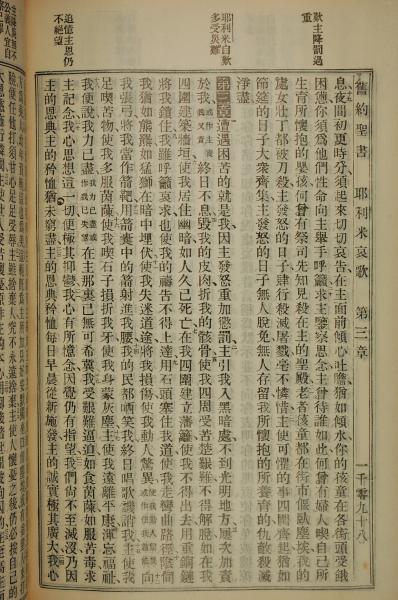 歎主降罰過
重
耶利米自歎
多受災難
追憶主恩仍
不絕望
舊約聖書 耶利米哀歌 第三章 一千零九十八
息夜間初更時分須起來切切哀告在主面前傾心吐膽猶如傾水你的孩童在各街頭受餓
困憊你須爲他們性命向主舉手呼籲求主鑒察思念主曾待誰如此何曾有婦人喫自己所
生育所懷抱的嬰孩何曾有祭司先知見殺在主的聖殿老者孩童都在街市偃臥塵埃我的
處女壯丁都被刀殺主發怒的日子肆行殺滅屠戮毫不憐惜主使可懼的事四圍齊起猶如
節筵的日子大衆齊集主發怒的日子無人脫免無人存留我所懷抱的所養育的仇敵殺滅
淨盡
第三章遭遇困苦的就是我因主發怒重加懲罰主引我入黑暗處不到光明地方屢次加責
於我終日不息毀我的皮肉折我的骸骨使我四周受苦楚艱難不得解脫如在我
四圍建築牆垣使我居住幽暗如人久已死亡在我四圍建立藩籬使我不得出去用重銅鏈
將我鎖住我雖呼籲哀求也使我的禱告不得上達用石頭塞住我道使我走彎曲路徑陰伺
我猶如熊羆如猛獅在暗中埋伏使我失迷道途將我損傷使我動人驚異
我張弓將我當作箭靶用箭囊中的箭射進我腰我的民都哂笑我終日唱歌譏誚我主使我
足喫苦物使我多服茵蔯使我喫石子損折我牙使我身蒙灰塵主使我遠離平康渾忘福祉
我便說我力已盡在主那裏已無可希冀我受艱難逼迫如食茵蔯如服苦毒求
主記念我心思想這一切便極其抑鬱我心有所憶念因覺仍有指望我們尚不至滅沒乃因
主的恩典主的矜恤猶未窮盡主的恩典矜恤每日早晨從新施發主的誠實極其廣大我心